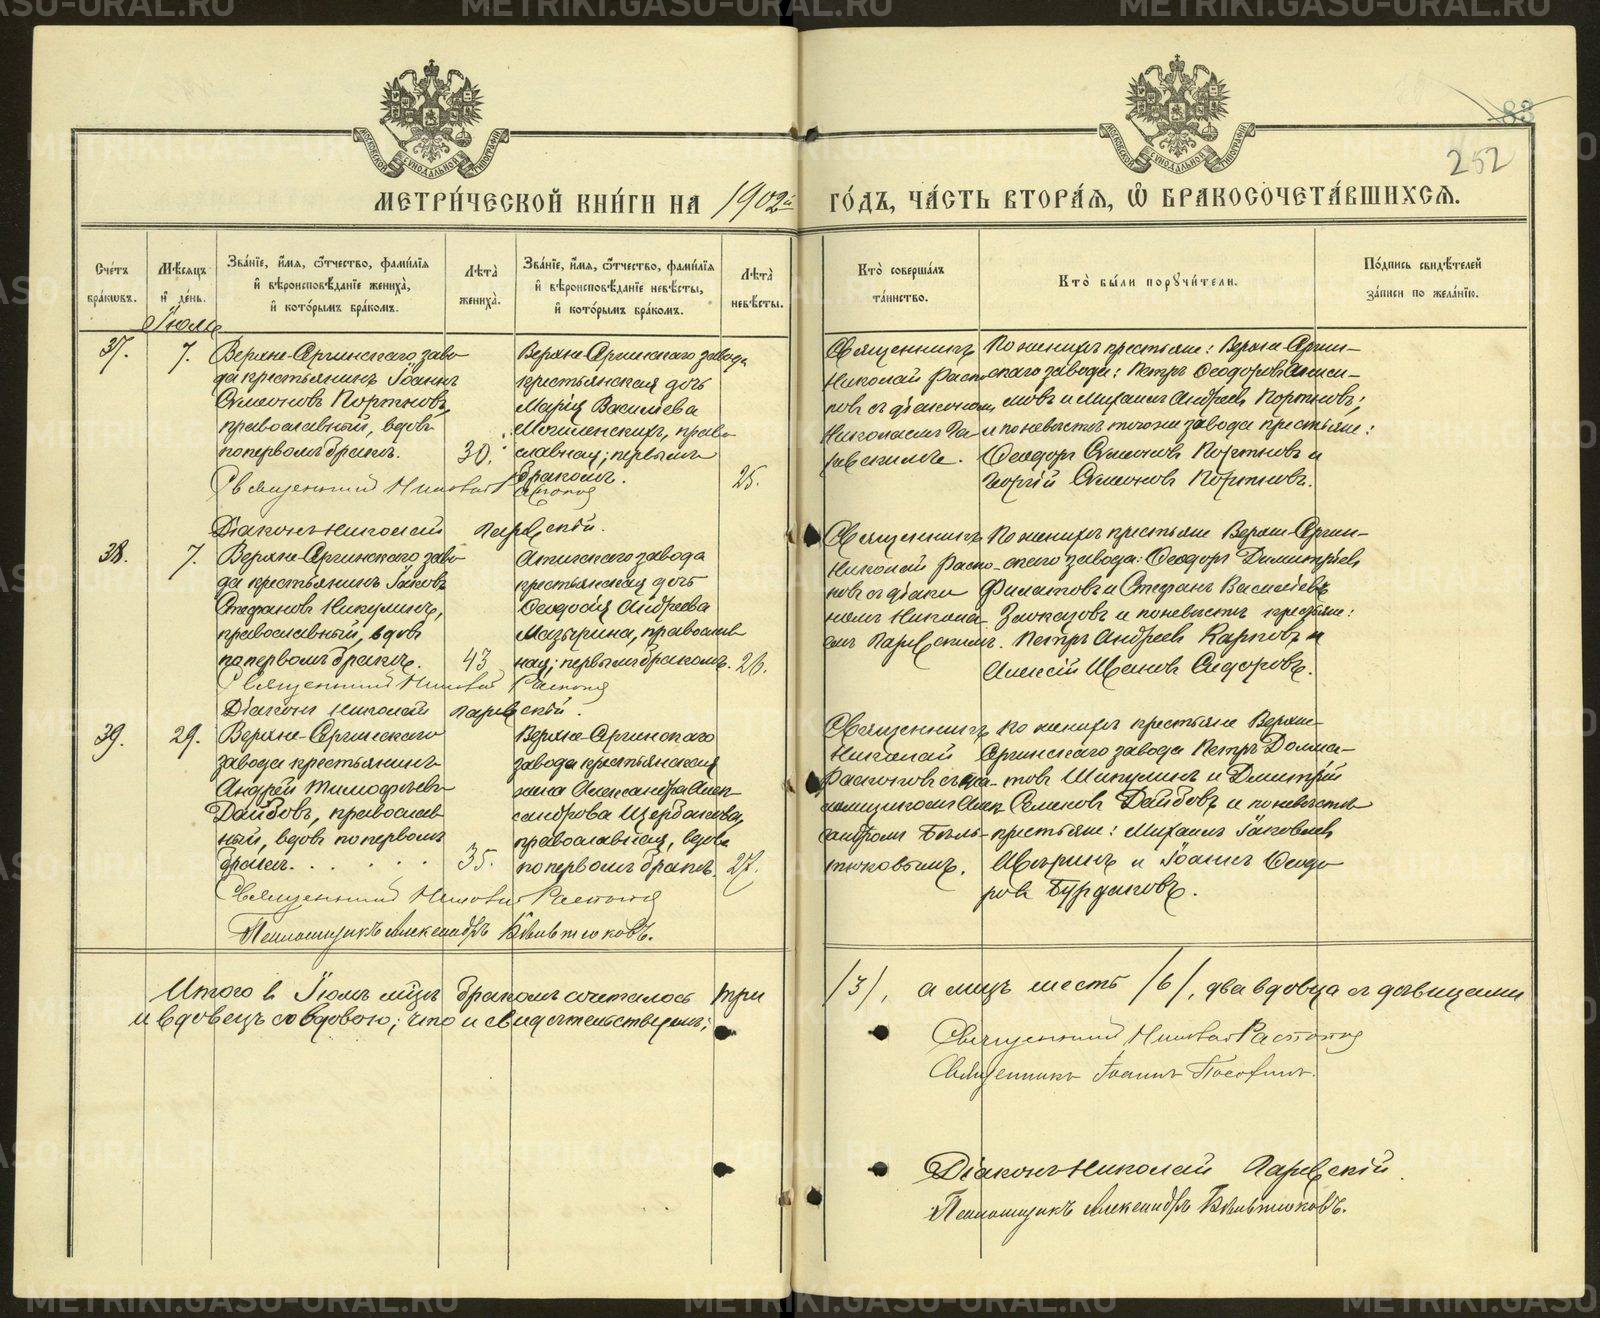 83
252
МЕТРИ́ЧЕСКОЙ КНИ́ГИ НА 1902й ГО́ДЪ, ЧА́СТЬ ВТОРА́Я, Ѡ БРАКОСОЧЕТА́ВШИХСЯ.
Сче́тъ бра́кѡвъ.
Мѣ́сяцъ и де́нь.
Зва́нїе, и́мя, ѻ҆́тчество, фами́лїя и҆ вѣроисповѣ́данїе жениха̀, и҆ кото́рымъ бра́комъ.
Лѣ́та жениха̀.
Зва́нїе, и́мя, ѻ҆́тчество, фами́лїя и҆ вѣроисповѣ́данїе невѣ́сты, и҆ кото́рымъ бра́комъ.
Лѣ́та невѣ́сты.
Кто̀ соверша́лъ та́инство.
Кто̀ бы́ли порꙋчи́тели.
По́дпись свидѣ́телей за́писи по жела́нїю.
Іюль
37.
7.
Верхне-Сергинскаго заво-
да крестьянинъ Іоаннъ
Симеоновъ Портновъ,
православный, вдовъ
по первомъ бракѣ.
30.
Верхне-Сергинскаго завода
крестьянская дочь
Марія Васильева
Могиленскихъ, право-
славная; первымъ
бракомъ.
25.
Священникъ
Николай Распо-
повъ съ діакономъ
Николаемъ Па-
ревскимъ.
По женихѣ крестьяне: Верхне-Сергин-
скаго завода: Петръ Ѳеодоровъ Аниси-
мовъ и Михаилъ Андреевъ Портновъ;
и по невѣстѣ того же завода крестьяне:
Ѳеодоръ Симеоновъ Портновъ и
Георгій Симеоновъ Портновъ.
Священникъ Николай Распоповъ
Діаконъ Николай Паревскій.
38.
7.
Верхне-Сергинскаго заво-
да крестьянинъ Іаковъ
Стефановъ Никулинъ,
православный, вдовъ
по первомъ бракѣ.
43
Атигскаго завода
крестьянская дочь
Ѳеодосія Андреева
Мазырина, православ-
ная; первымъ бракомъ.
26.
Священникъ
Николай Распо-
повъ съ діако-
номъ Никола-
емъ Паревскимъ.
По женихѣ крестьяне Верхне-Сергин-
скаго завода: Ѳеодоръ Димитріевъ
Филатовъ и Стефанъ Васильевъ
Заоказовъ и по невѣстѣ крестьяне:
Петръ Андреевъ Карповъ и
Алексій Ивановъ Сидоровъ.
Священникъ Николай Распоповъ
Діаконъ Николай Паревскій.
39.
29.
Верхне-Сергинскаго
завода крестьянинъ
Андрей Тимоѳеевъ
Даибовъ, православ-
ный, вдовъ по первомъ
бракѣ. . . . .
35.
Верхне-Сергинскаго
завода крестьянская
жена Александра Алек-
сандрова Щербакова,
православная, вдова
по первомъ бракѣ.
27.
Священникъ
Николай
Распоповъ съ пса-
ломщикомъ Алек-
сандромъ Бѣль-
тюковымъ.
По женихѣ крестьяне Верхне-
Сергинскаго завода Петръ Долма-
товъ Шипулинъ и Дмитрій
Семеновъ Даибовъ и по невѣстѣ
крестьяне: Михаилъ Іаковлевъ
Ивъринъ и Іоаннъ Ѳеодо-
ровъ Бурдаковъ.
Священникъ Николай Распоповъ
Псаломщикъ Александръ Бѣльтюковъ.
Итого въ Іюлѣ мѣ-цѣ бракомъ сочеталось три /3/, а лицъ шесть /6/, два вдовца съ дѣвицами
и вдовецъ со вдовою; что и свидѣтельствуемъ;
Священникъ Николай Распоповъ
Священникъ Іоаннъ
Діаконъ Николай Паревскій.
Псаломщикъ Александръ Бѣльтюковъ.
METRIKI.GASO-URAL.RU